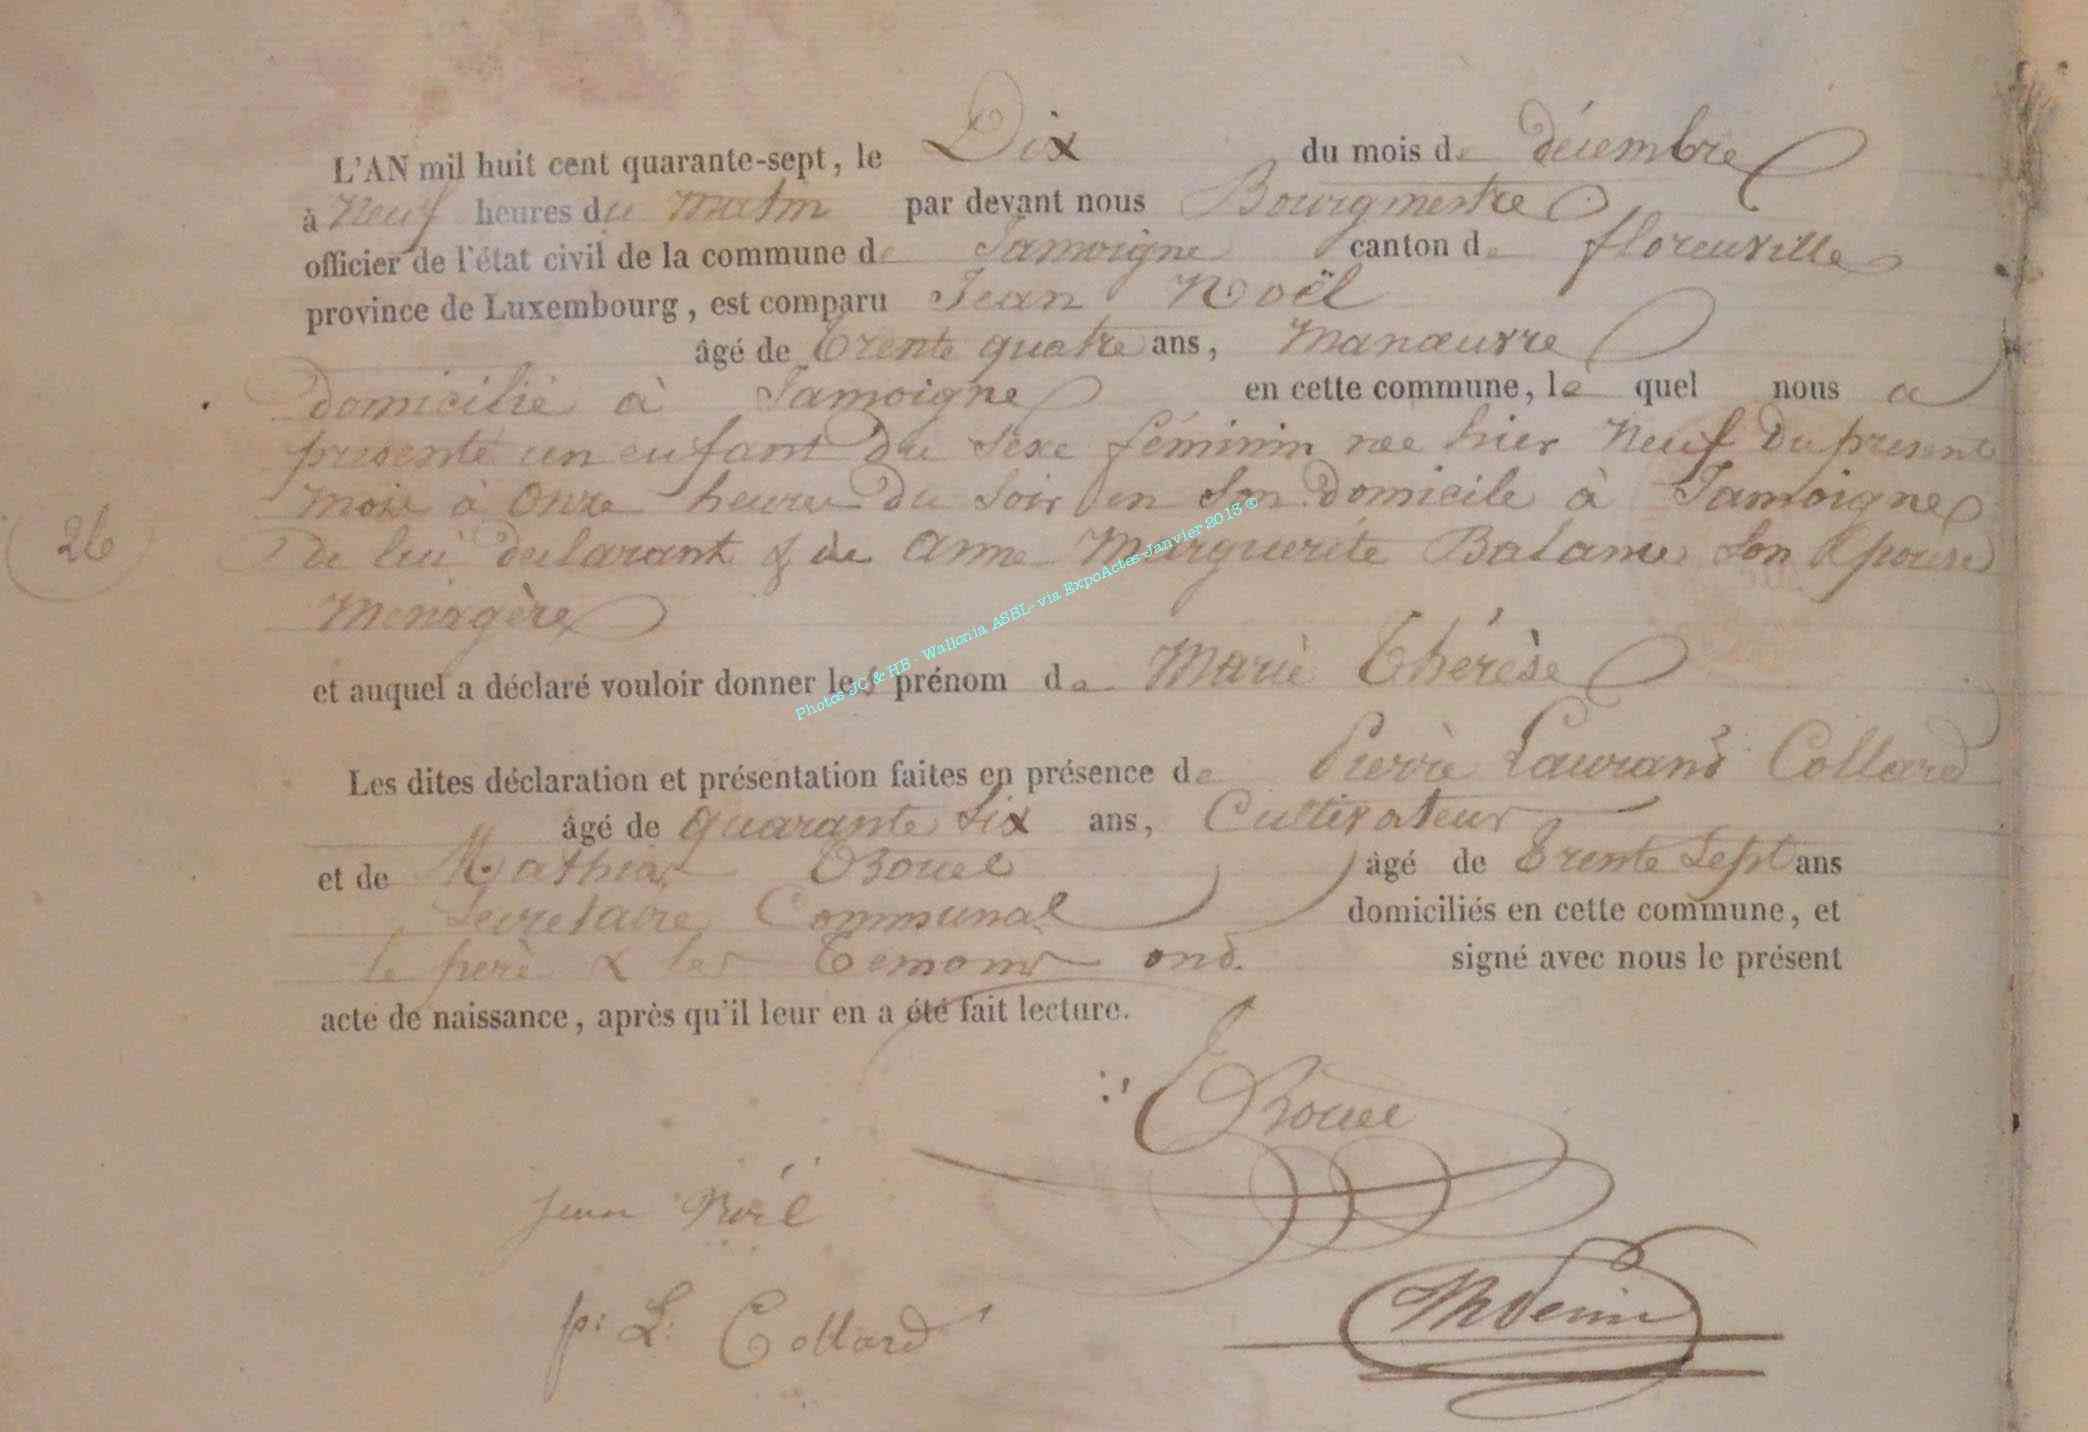 L'AN mil huit cent quarante-sept, le Dix du mois de décembre
à Neuf heures du matin par devant nous Bourgmestre
officier de l'état civil de la commune de Jamoigne canton de florenville
province de Luxembourg, est comparu Jean Noël
âgé de trente quatre ans, Manœuvre
domicilié à Jamoigne en cette commune, le quel nous a
presenté un enfant du sexe féminin nee hier Neuf du present
mois à Onze heures du soir en son domicile à Jamoigne
26 de lui declarant & de Anne Marguerite Balame son Epouse
Menagère
et auquel a déclaré vouloir donner les prénom de Marie Thérèse
Les dites déclaration et présentation faites en présence de Pierre Laurand Collard
âgé de quarante six ans, Cultivateur
et de Mathias Bouel âgé de trente sept ans
Secretaire Communal domiciliés en cette commune, et
le pere & les temoins ond signé avec nous le présent
acte de naissance, après qu'il leur en a été fait lecture.
Bouel
Jean Noël
p: L: Collard
Photos JC & HB - Wallonia ASBL - via ExpoActes Janvier 2013 ©